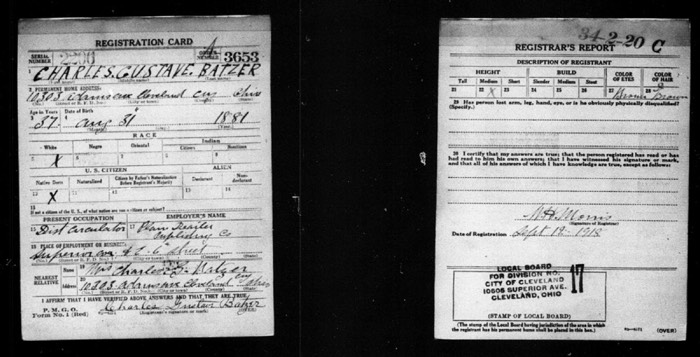 REGISTRATION CARD
SERIAL NUMBER
ORDER NUMBER 3653
1 CHARLES. GUSTAVE. BATZER
2 PERMANENT HOME ADDRESS:
10303 Cleveland Cuy Ohio
Age in Years
Date of Birth
37. Aug 31 1881
(Month.) (Day.) (Year.)
RACE
White Negro Oriental Indian
Citizen Noncitizen
X
U. S. CITIZEN ALIEN
Native Born Naturalized Citizen by Father's Naturalization Before Registrant's Majority Declarant Non-declarant
10 X 11 12 13 14
15
If not a citizen of the U. S., of what nation are you a citizen or subject?
PRESENT OCCUPATION EMPLOYER'S NAME
16 Dist Circulator 17 Plain Dealer
Publishing Co
18 PLACE OF EMPLOYMENT OR BUSINESS:
Superior ave & E. 6 Street
NEAREST RELATIVE
Name 19 Mrs Charles Batzer
Address 20 10303 Cleveland Cuy Ohio
I AFFIRM THAT I HAVE VERIFIED ABOVE ANSWERS AND THAT THEY ARE TRUE
P. M. G. O.
Form No. 1 (Red)
Charles Gustave Batzer
(Registrant's signature or mark) (OVER)
34-2-20 C
REGISTRAR'S REPORT
DESCRIPTION OF REGISTRANT
HEIGHT BUILD COLOR OF EYES COLOR OF HAIR
Tall Medium Short Slender Medium Stout
21 22 X 23 24 25 26 27 Brown 28 Brown
29 Has person lost arm, leg, hand, eye, or is he obviously physically disqualified?
(Specify.)
30 I certify that my answers are true; that the person registered has read or has
had read to him his own answers; that I have witnessed his signature or mark,
and that all of his answers of which I have knowledge are true, except as follows:
Morris
(Signature of Registrar)
Date of Registration Sept 12 - 1918
LOCAL BOARD
FOR DIVISION NO. 17
CITY OF CLEVELAND
10605 SUPERIOR AVE.
CLEVELAND, OHIO
(STAMP OF LOCAL BOARD)
(The stamp of the Local Board having jurisdiction of the area in which
the registrant has his permanent home shall be placed in this box.)
(OVER)